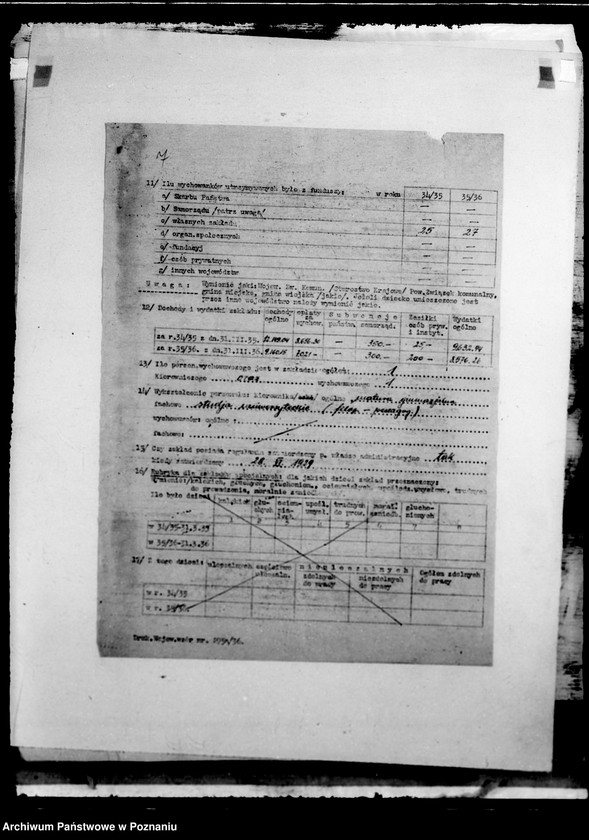 11/ Ilu wychowanków utrzymywanych było z funduszy: w roku 34/35 35/36
a/ Skarbu Państwa — —
b/ Samorządu /patrz uwaga/ — —
c/ własnych zakładu — —
d/ organ.społecznych 25 27
e/ fundacyj — —
f/ osób prywatnych — —
g/ innych województw — —
Uwaga: Wymienić jaki: Wojew. Kr. Komun. /Starostwo Krajowe/ Pow.Związek komunalny,
gmina miejska, gmina wiejska /jakie/. Jeżeli dziecko umieszczone jest
przez inne województwo należy wymienić jakie.
12/ Dochody i wydatki zakładu: dochody ogólne opłaty za wychow. Subwencje państw. samorząd. Zasiłki osób pryw. i instyt. Wydatki ogólne
za r.34/35 z dn.31.III.35. — 300.— 25.—
za r.35/36. z dn.31.III.36. — 300.— 200.—
13/ Ile person.wychowawczego jest w zakładzie ogółem: 1
Kierowniczego wychowawczego 1
14/ Wykształcenie personelu: Kierownika/czki/ ogólne matura gimnazjalna
fachowe studja uniwersyteckie
wychowawców: ogólne:
fachowe:
15/ Czy zakład posiada regulamin zatwierdzony p. władze administracyjne tak
kiedy zatwierdzony 28 XI. 1929
16/ Rubryka dla zakładów specjalnych: dla jakich dzieci zakład przeznaczony:
do prowadzenia, moralnie zaniedbanych/.
Ile było dzieci kalekich głuchych ociemniałych upośl. umysł. trudnych do prow. moral. zaniedb. głuchoniemych
1 2 3 4 5 6 7 8
w 34/35-31.3.35
w 35/36-31.3.36
17/ Z tego dzieci: uleczalnych częściowo uleczaln. nieuleczalnych zdolnych do pracy niezdolnych do pracy Ogółem zdolnych do pracy
w r. 34/35
w r. 35/36
Druk.Wojew.wzór nr.
Archiwum Państwowe w Poznaniu